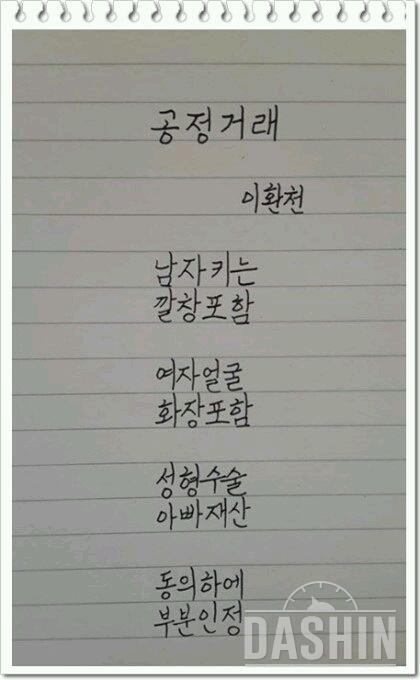 공정거래
이환천
남자키는
깔창포함
여자얼굴
화장포함
성형수술
아빠재산
동의하에
부분인정
DASHIN